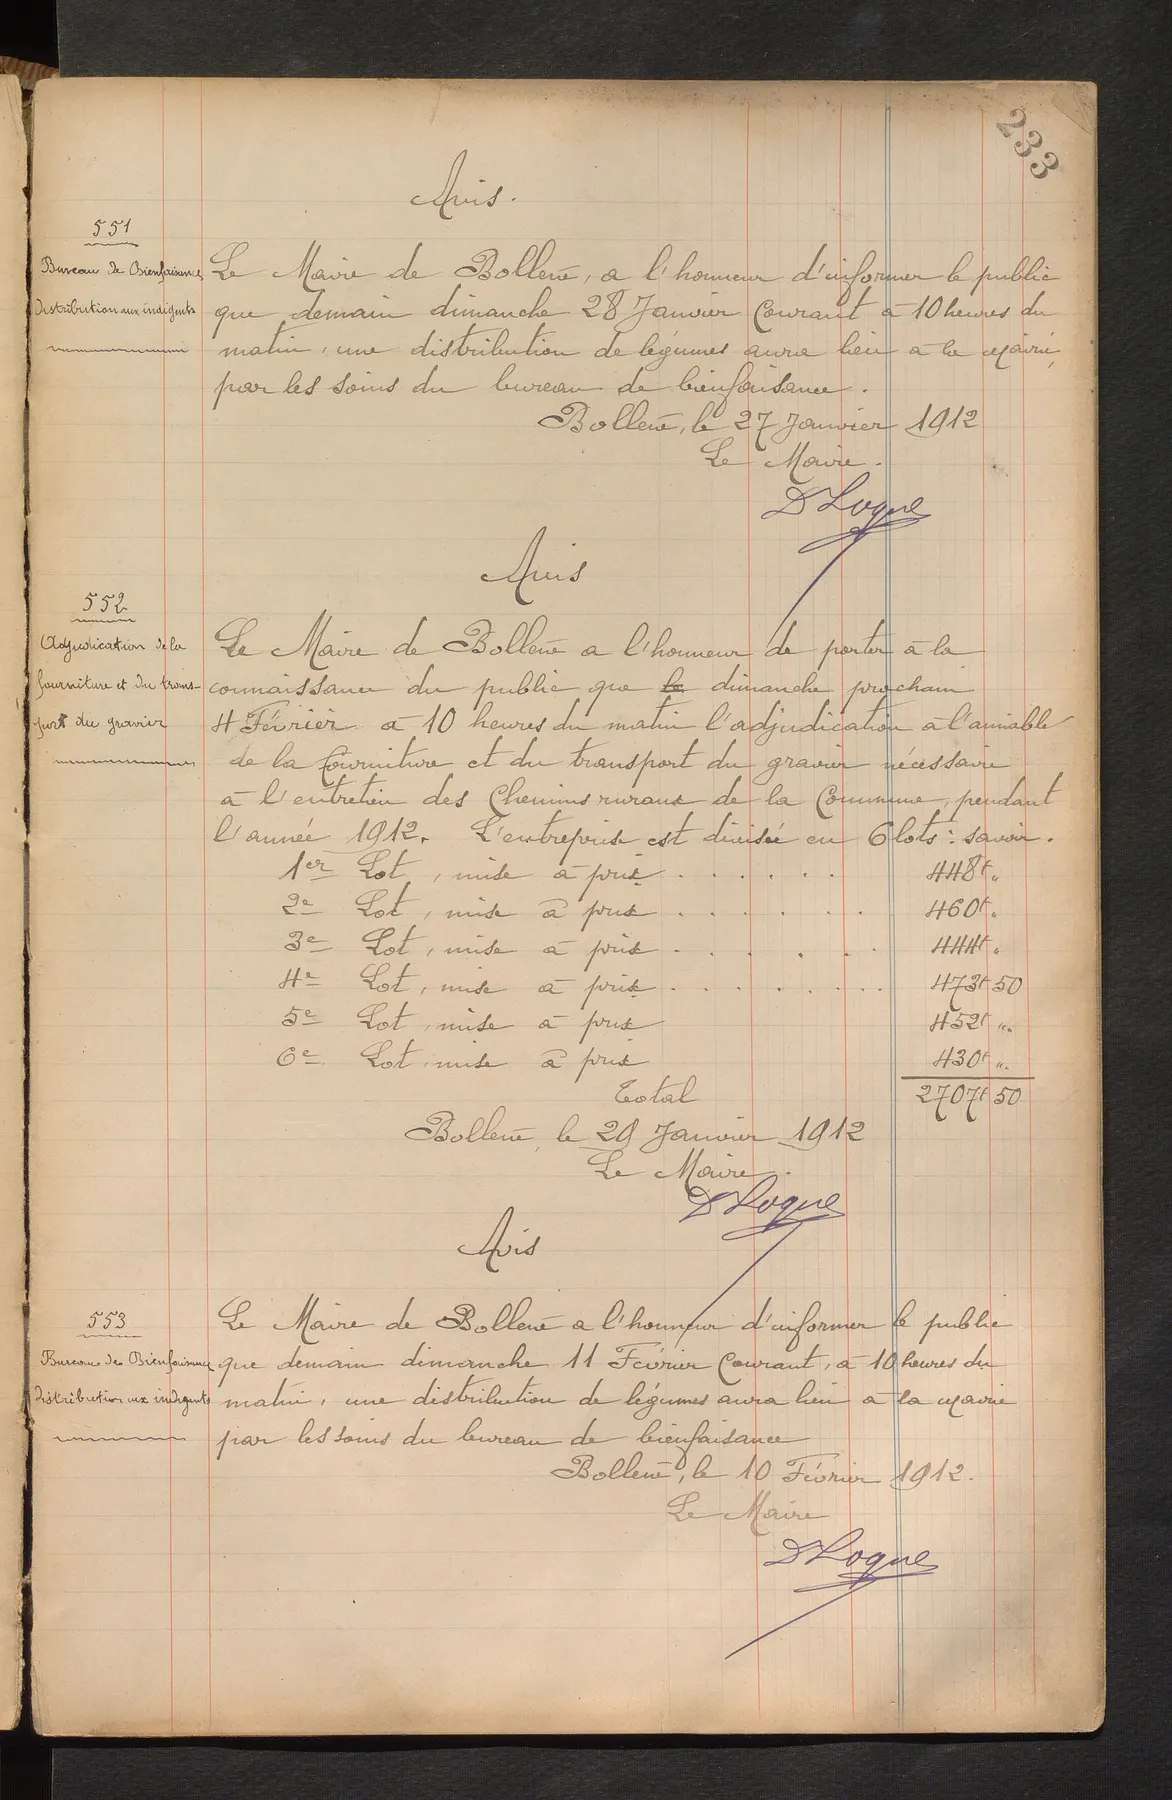 233
Avis.
551
Bureau de Bienfaisance
Distribution aux indigents
Le Maire de Bollène, a l'honneur d'informer le public
que demain dimanche 28 Janvier Courant à 10 heures du
matin, une distribution de légumes aura lieu à la mairie,
par les soins du bureau de bienfaisance.
Bollène, le 27 Janvier 1912
Le Maire.
D Loque
Avis
552
Adjudication de la
fourniture et du trans-
port du gravier
Le Maire de Bollène a l'honneur de porter à la
connaissance du public que le dimanche prochain
4 Février à 10 heures du matin l'adjudication a l'amiable
de la fourniture et du transport du gravier nécessaire
à l'entretien des Chemins ruraux de la Commune, pendant
l'année 1912. L'entreprise est divisée en 6 lots : savoir.
1er Lot, mise à prix . . . . . . 448f "
2e Lot, mise à prix . . . . . . 460f "
3e Lot, mise à prix . . . . . 444f "
4e Lot, mise à prix . . . . . . . . . 473f 50
5e Lot, mise à prix 452f "
6e Lot, mise à prix 430f "
Total 2707f 50
Bollène, le 29 Janvier 1912
Le Maire.
D Loque
Avis
553
Bureau de Bienfaisance
Distribution aux indigents
Le Maire de Bollène a l'honneur d'informer le public
que demain dimanche 11 Février Courant, à 10 heures du
matin, une distribution de légumes aura lieu à la mairie
par les soins du bureau de bienfaisance
Bollène, le 10 Février 1912.
Le Maire
D Loque